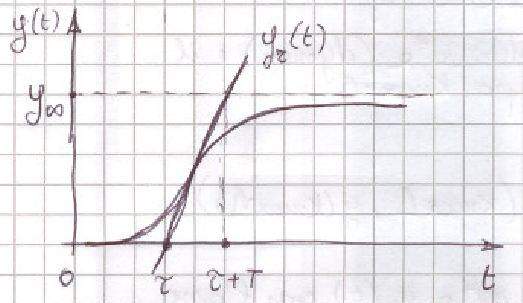 y(t)
y_τ(t)
y∞
0
τ
τ+T
t